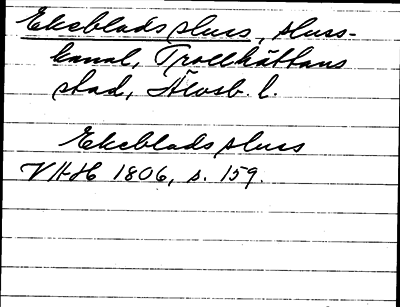 Ekeblads sluss, sluss-
kanal, Trollhättans
stad, Älvsb. l.
Ekeblads sluss
VHH 1806, s. 159.